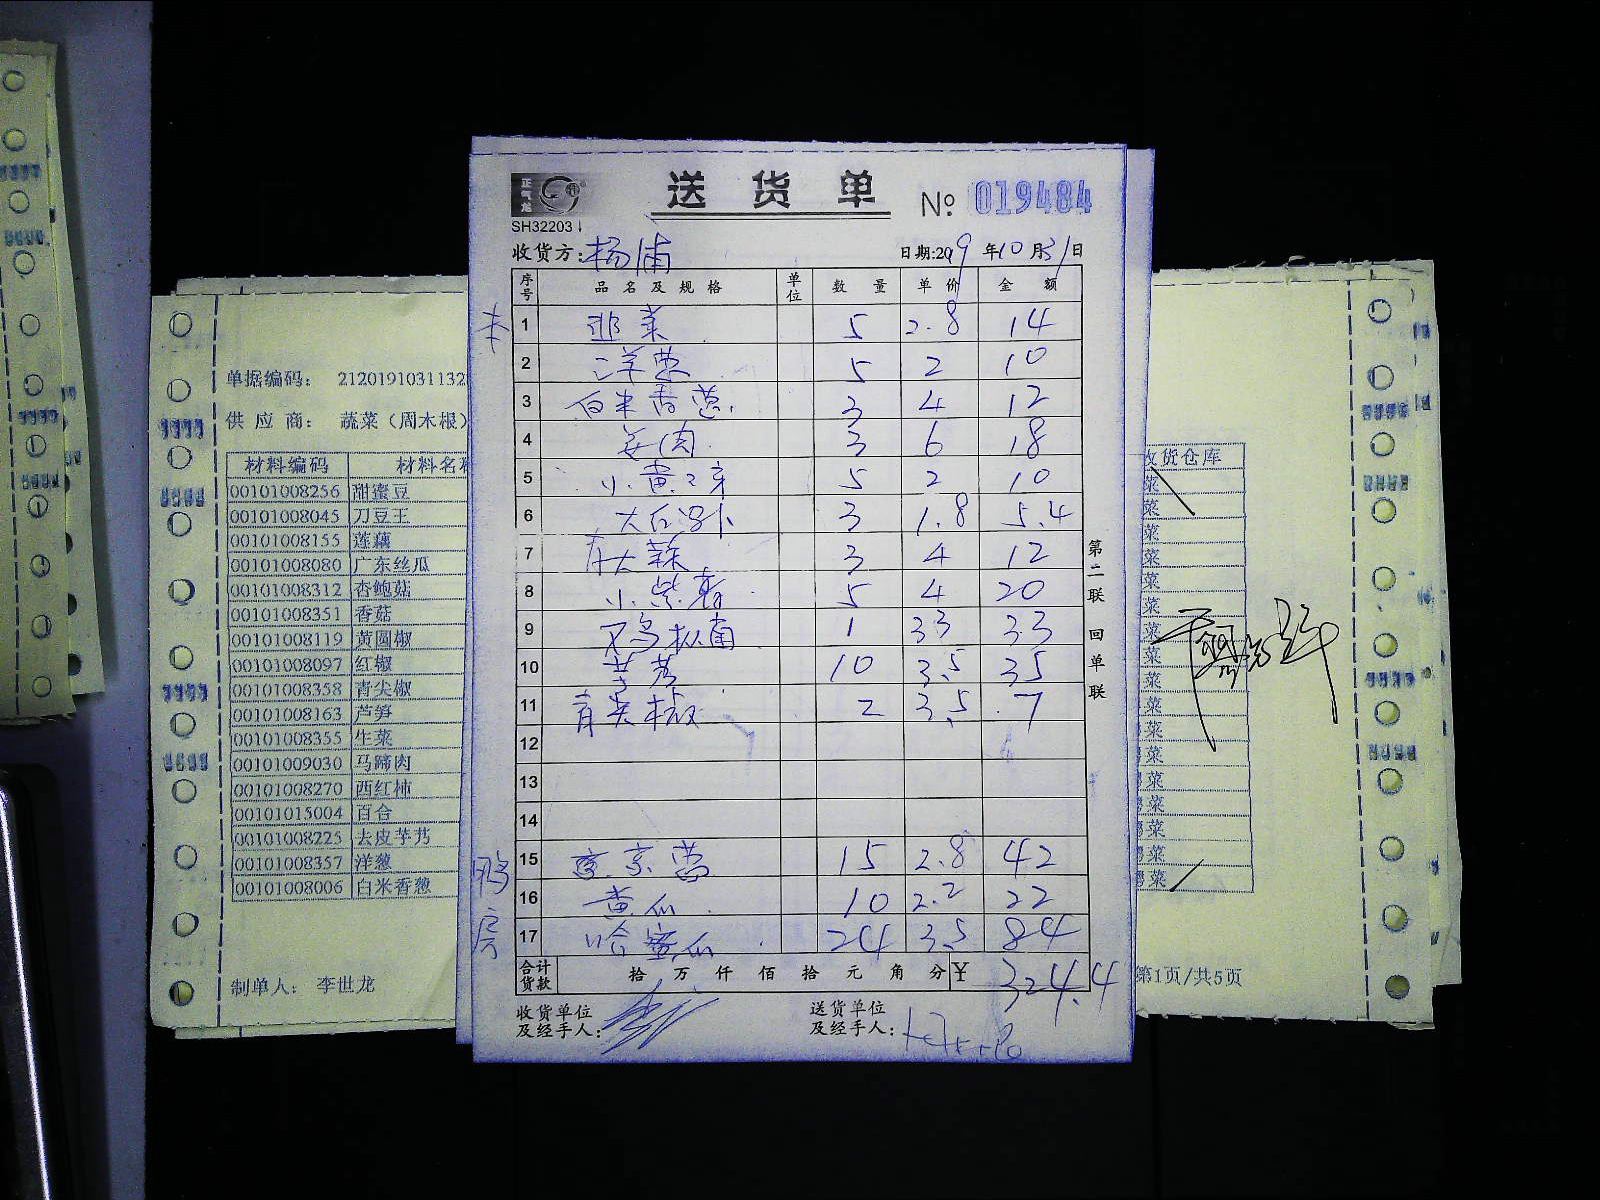 正气龙
送货单
№ 019484
SH32203
收货方:杨浦 日期:2019年10月31日
序号 品名及规格 单位 数量 单价 金额
1 韭菜 5 2.8 14
2 洋葱 5 2 10
3 白米香葱 3 4 12
4 姜肉 3 6 18
5 小黄瓜 5 2 10
6 3 1.8 5.4
7 大蒜 3 4 12
8 小紫 5 4 20
9 1 33 33
10 芋艿 10 3.5 35
11 青尖椒 2 3.5 7
12
13
14
15 京葱 15 2.8 42
16 黄瓜 10 2.2 22
17 哈蜜瓜 24 3.5 84
鸭房
合计货款 拾万仟佰拾元角分 ¥ 324.4
收货单位及经手人:
送货单位及经手人:
第二联 回单联
单据编码: 2120191031132
供应商: 蔬菜(周木根)
材料编码 材料名称
00101008256 甜蜜豆
00101008045 刀豆王
00101008155 莲藕
00101008080 广东丝瓜
00101008312 杏鲍菇
00101008351 香菇
00101008119 黄圆椒
00101008097 红椒
00101008358 青尖椒
00101008163 芦笋
00101008355 生菜
00101009030 马蹄肉
00101008270 西红柿
00101015004 百合
00101008225 去皮芋艿
00101008357 洋葱
00101008006 白米香葱
制单人: 李世龙
收货仓库
菜
菜
菜
菜
菜
菜
菜
菜
菜
菜
菜
菜
菜
菜
菜
菜
菜
第1页/共5页